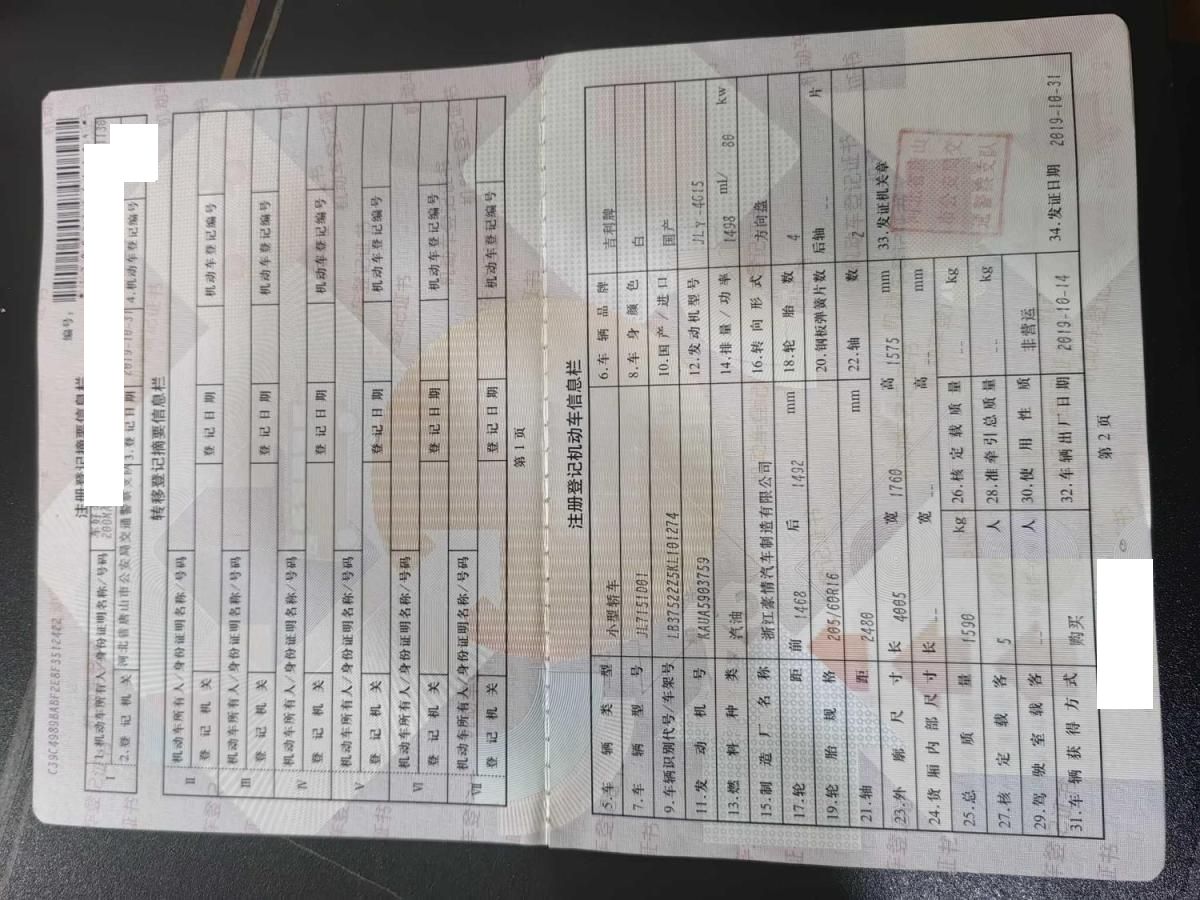 C39C4989BABF2E8F3512A422
编号：
注册登记摘要信息栏
I 1.机动车所有人/身份证明名称/号码
2.登记机关 河北省唐山市公安局交通警察支队 3.登记日期 2019-10-31 4.机动车登记编号
转移登记摘要信息栏
II 机动车所有人/身份证明名称/号码
登记机关 登记日期 机动车登记编号
III 机动车所有人/身份证明名称/号码
登记机关 登记日期 机动车登记编号
IV 机动车所有人/身份证明名称/号码
登记机关 登记日期 机动车登记编号
V 机动车所有人/身份证明名称/号码
登记机关 登记日期 机动车登记编号
VI 机动车所有人/身份证明名称/号码
登记机关 登记日期 机动车登记编号
VII 机动车所有人/身份证明名称/号码
登记机关 登记日期 机动车登记编号
第 1 页
注册登记机动车信息栏
5.车辆类型 小型轿车 6.车辆品牌 吉利牌
7.车辆型号 JL7151D01 8.车身颜色 白
9.车辆识别代号/车架号 LB37522Z5KL101274 10.国产/进口 国产
11.发动机号 KAUA5903759 12.发动机型号 JLY-4G15
13.燃料种类 汽油 14.排量/功率 1498 ml/ 80 kw
15.制造厂名称 浙江豪情汽车制造有限公司 16.转向形式 方向盘
17.轮距 前 1468 后 1492 mm 18.轮胎数 4
19.轮胎规格 205/60R16 20.钢板弹簧片数 后轴 -- 片
21.轴距 2480 mm 22.轴数 2
23.外廓尺寸 长 4005 宽 1760 高 1575 mm 33.发证机关章
24.货厢内部尺寸 长 -- 宽 -- 高 -- mm
25.总质量 1590 kg 26.核定载质量 -- kg
27.核定载客 5 人 28.准牵引总质量 -- kg
29.驾驶室载客 -- 人 30.使用性质 非营运
31.车辆获得方式 购买 32.车辆出厂日期 2019-10-14 34.发证日期 2019-10-31
第 2 页